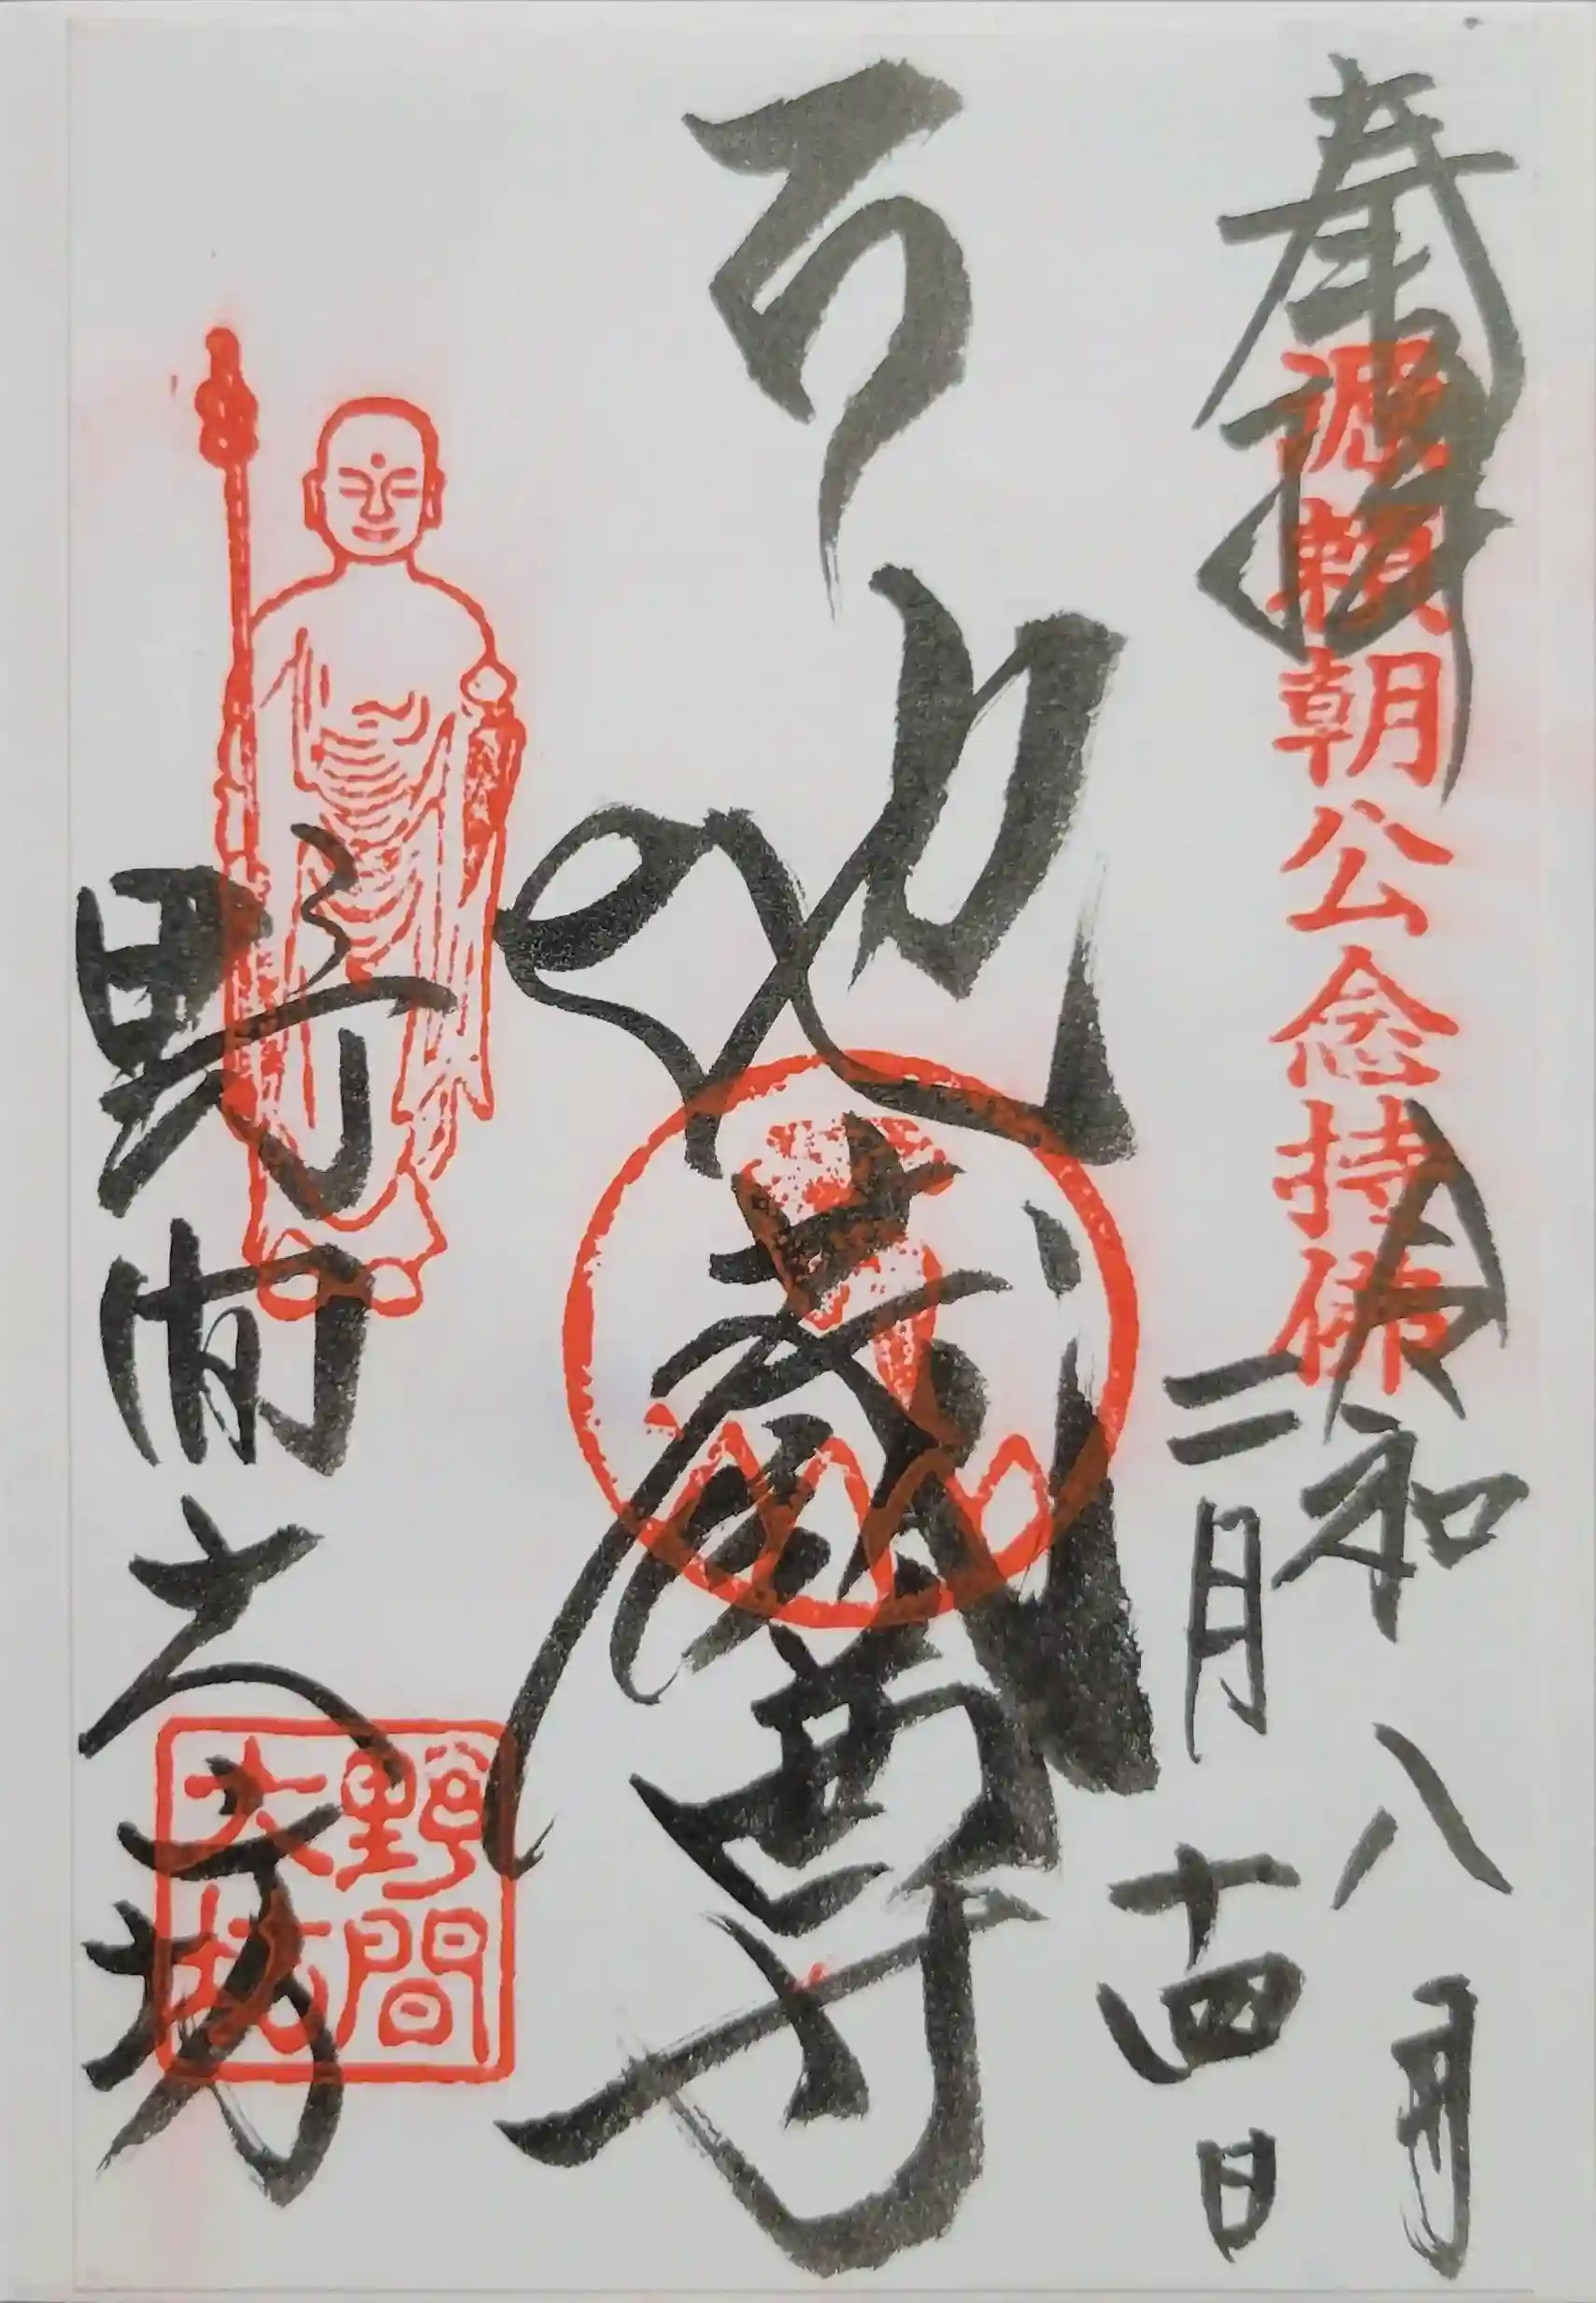 奉拝
源頼朝公念持佛
令和八年
二月十四日
地蔵尊
野間大坊
野間
大坊